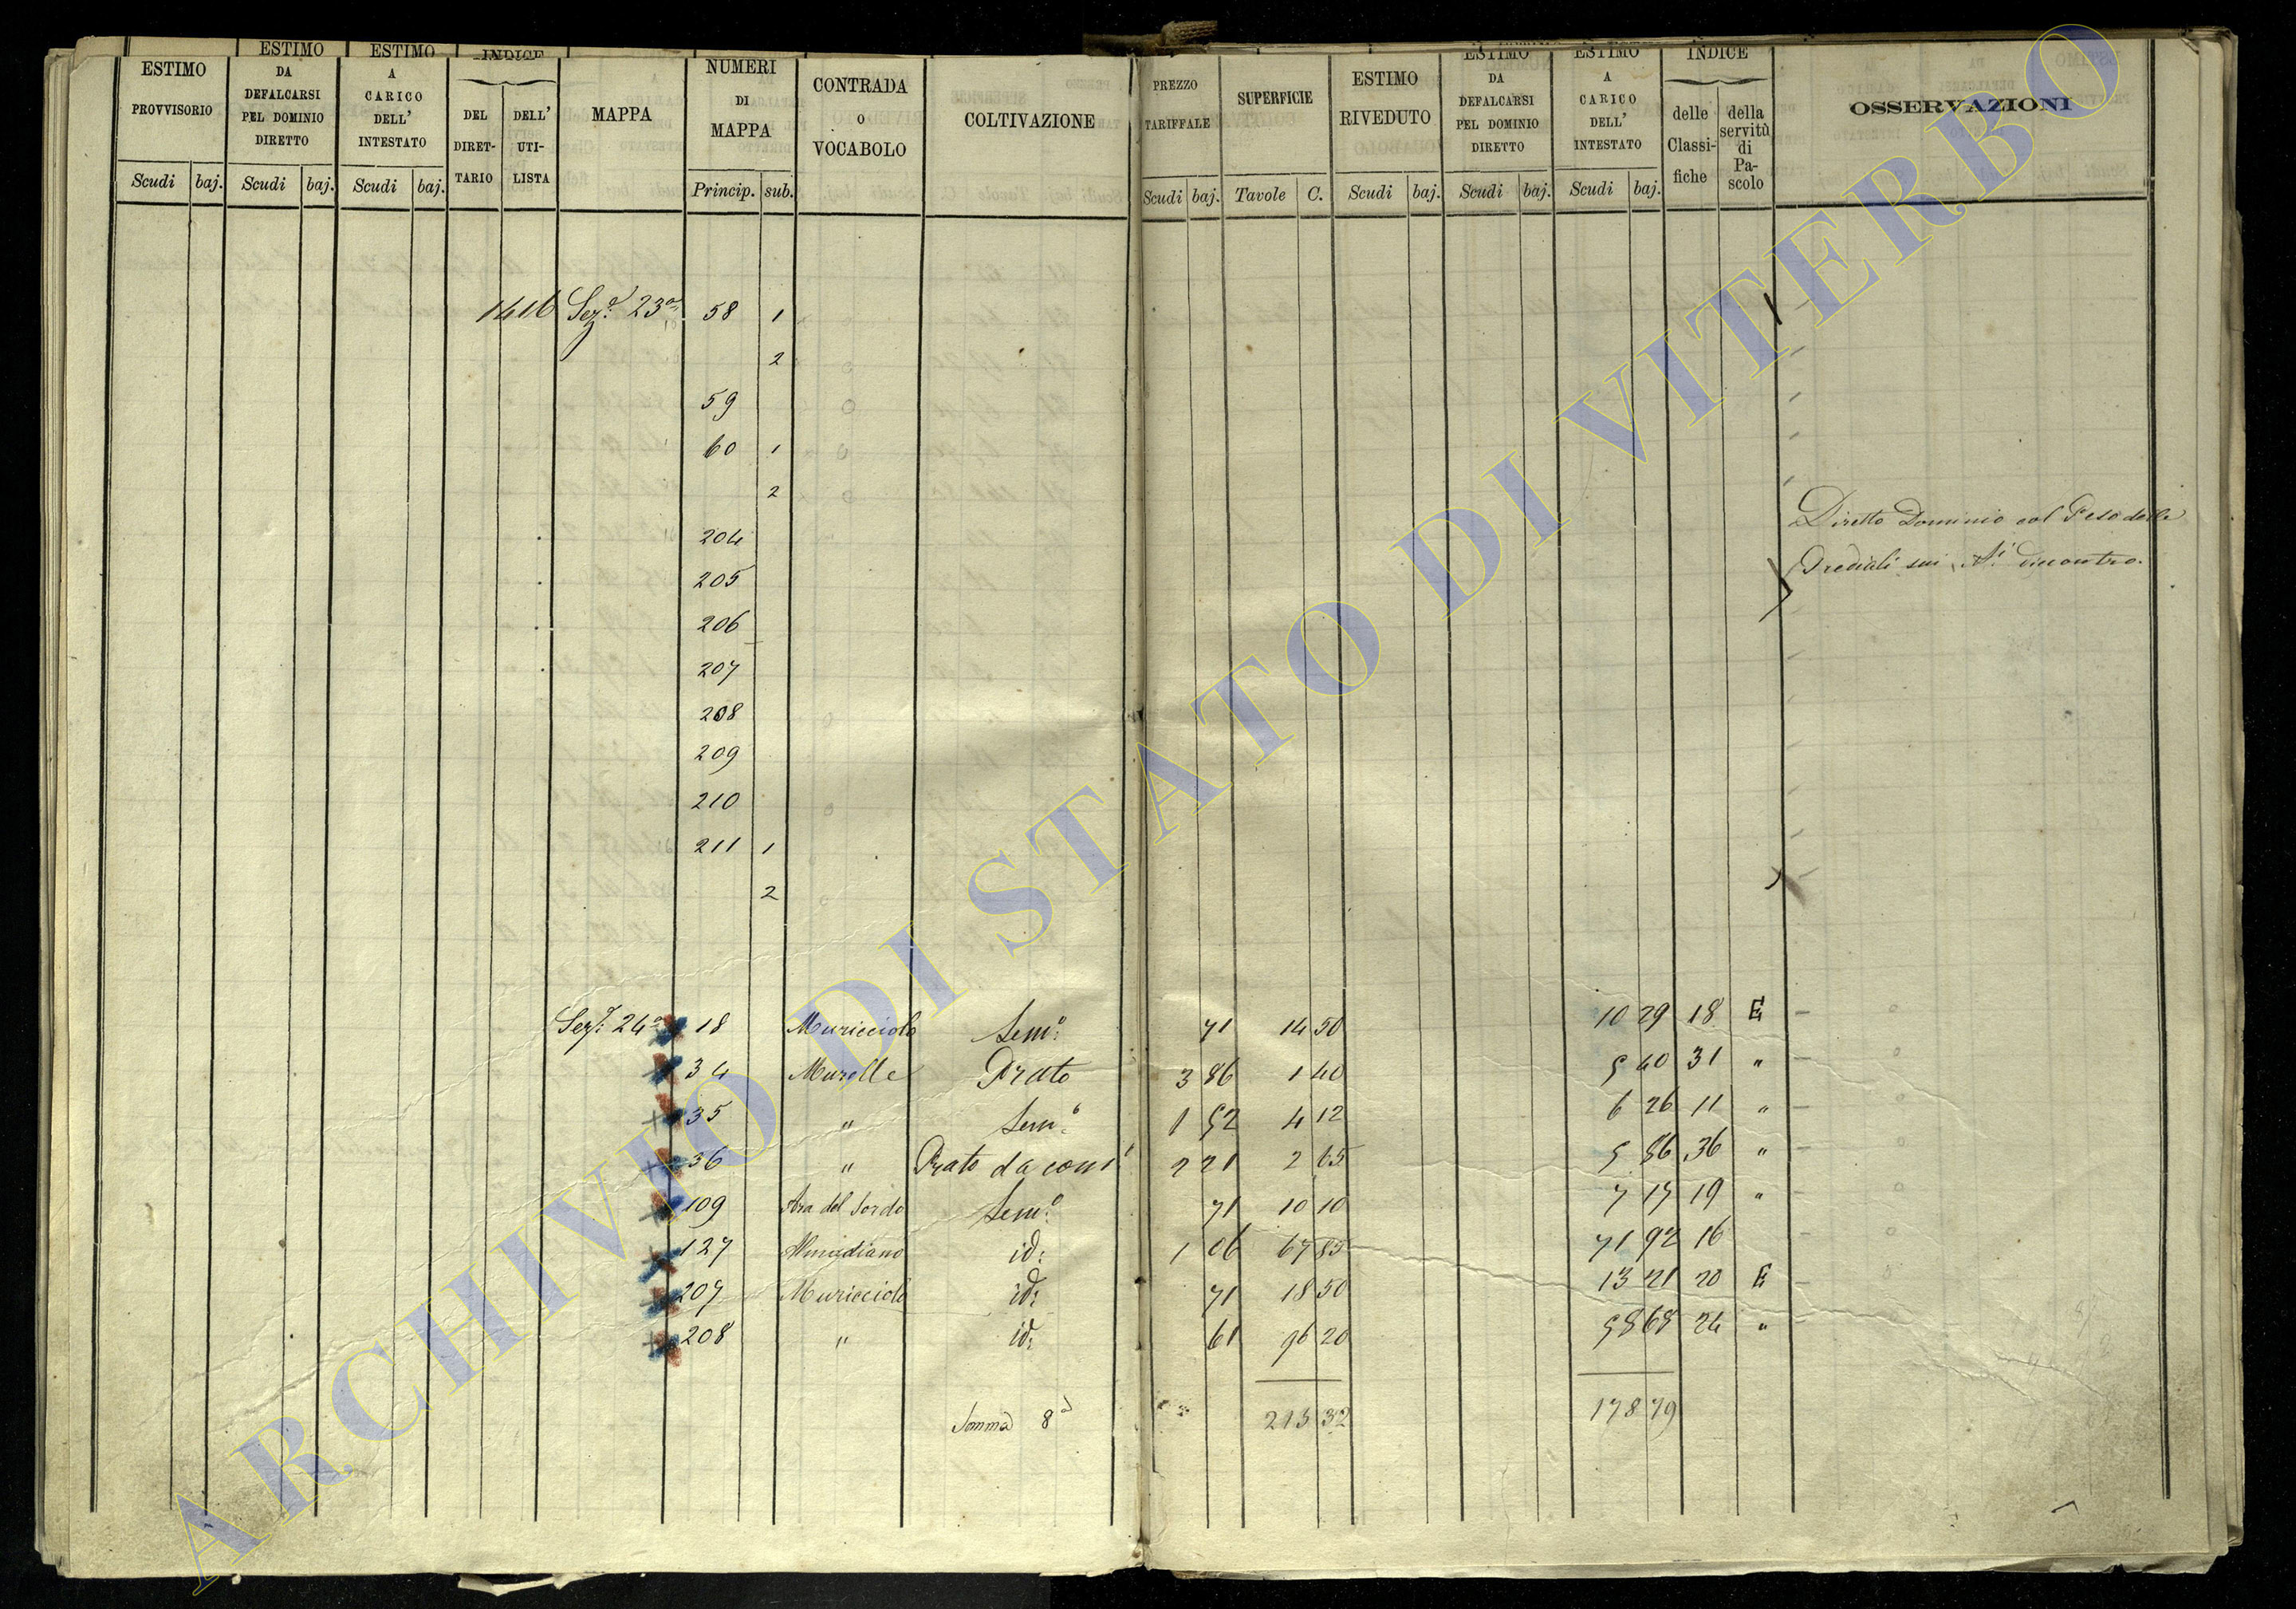 ESTIMO PROVVISORIO
ESTIMO DA DEFALCARSI PEL DOMINIO DIRETTO
ESTIMO A CARICO DELL' INTESTATO
INDICE
DEL DIRET-TARIO
DELL' UTI-LISTA
MAPPA
NUMERI DI MAPPA
CONTRADA O VOCABOLO
COLTIVAZIONE
PREZZO TARIFFALE
SUPERFICIE
ESTIMO RIVEDUTO
ESTIMO DA DEFALCARSI PEL DOMINIO DIRETTO
ESTIMO A CARICO DELL' INTESTATO
INDICE
delle Classi-fiche
della servitù di Pa-scolo
OSSERVAZIONI
Scudi baj. Scudi baj. Scudi baj. Princip. sub. Scudi baj. Tavole C. Scudi baj. Scudi baj. Scudi baj.
1416 Sez.e 23a 58 1
2
59
60 1
2
204
205
206
207
208
209
210
211 1
2
Diretto Dominio col Peso delle
Prediali sui Ni dincontro.
Sez.e 24a 18 Muricciolo Sem.o 71 14 50 10 29 18 E
34 Murelle Prato 3 86 1 40 5 40 31 "
35 " Sem.o 1 52 4 12 6 26 11 "
36 " Prato da 2 21 2 65 5 86 36 "
109 Ara del Sordo Sem.o 71 10 10 7 17 19 "
127 id: 1 06 67 85 71 92 16
207 Muricciolo id: 71 18 50 13 21 20 E
208 " id: 61 96 20 58 68 24 "
Somma 8a 215 32 178 79
ARCHIVIO DI STATO DI VITERBO